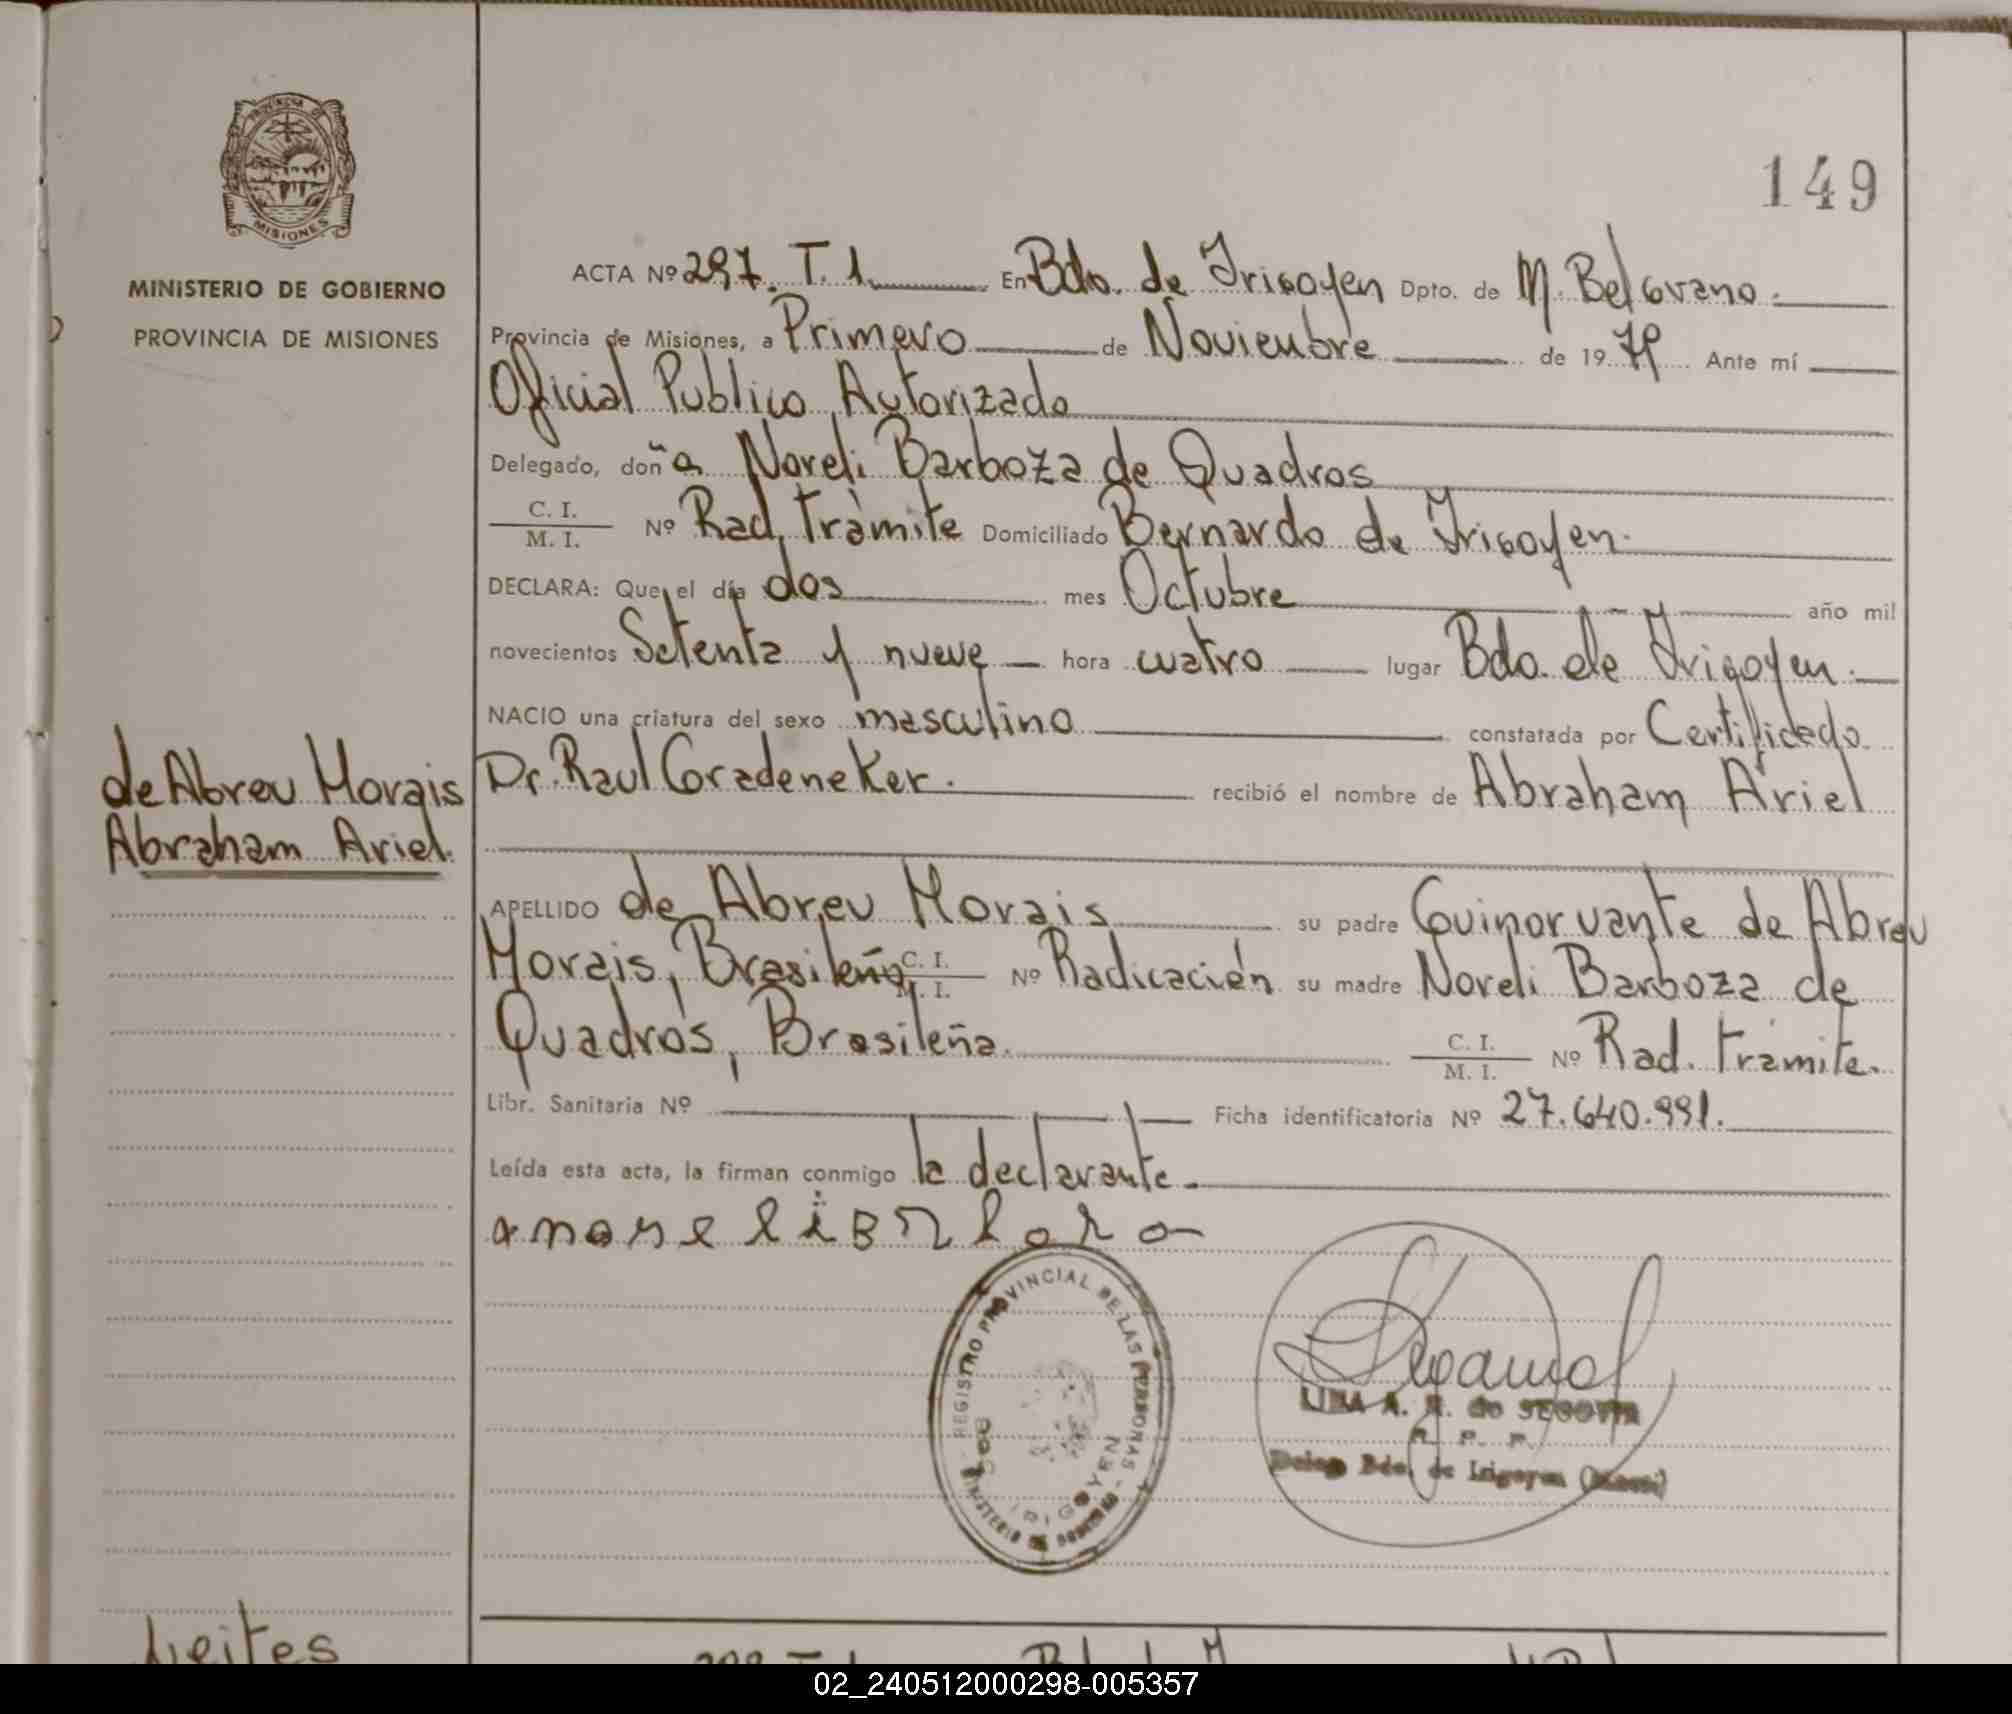 149
MINISTERIO DE GOBIERNO
PROVINCIA DE MISIONES
PROVINCIA DE
MISIONES
ACTA Nº 297. T. 1. En Bdo. de Irigoyen Dpto. de M. Belgrano.
Provincia de Misiones, a Primero de Noviembre de 1979 Ante mí
Oficial Publico Autorizado
Delegado, doña Noreli Barboza de Quadros
C. I.
M. I. Nº Rad. Tràmite Domiciliado Bernardo de Irigoyen.
DECLARA: Que el día dos mes Octubre año mil
novecientos Setenta y nueve hora cuatro lugar Bdo. de Irigoyen.
NACIO una criatura del sexo masculino constatada por Certificado
Dr. Raul Gradeneker. recibió el nombre de Abraham Ariel
de Abreu Morais
Abraham Ariel.
APELLIDO de Abreu Morais su padre Guinorvante de Abreu
Morais, Brasileño C. I. M. I. Nº Radicación su madre Noreli Barboza de
Quadros, Brasileña. C. I. M. I. Nº Rad. tramite.
Libr. Sanitaria Nº Ficha identificatoria Nº 27.640.991.
Leída esta acta, la firman conmigo la declarante.
REGISTRO PROVINCIAL DE LAS PERSONAS - MINISTERIO DE GOBIERNO
IRIGOYEN
LINA A. R. de SEGOVIA
Deleg. Bdo. de Irigoyen (Mnes)
Leites
02_240512000298-005357